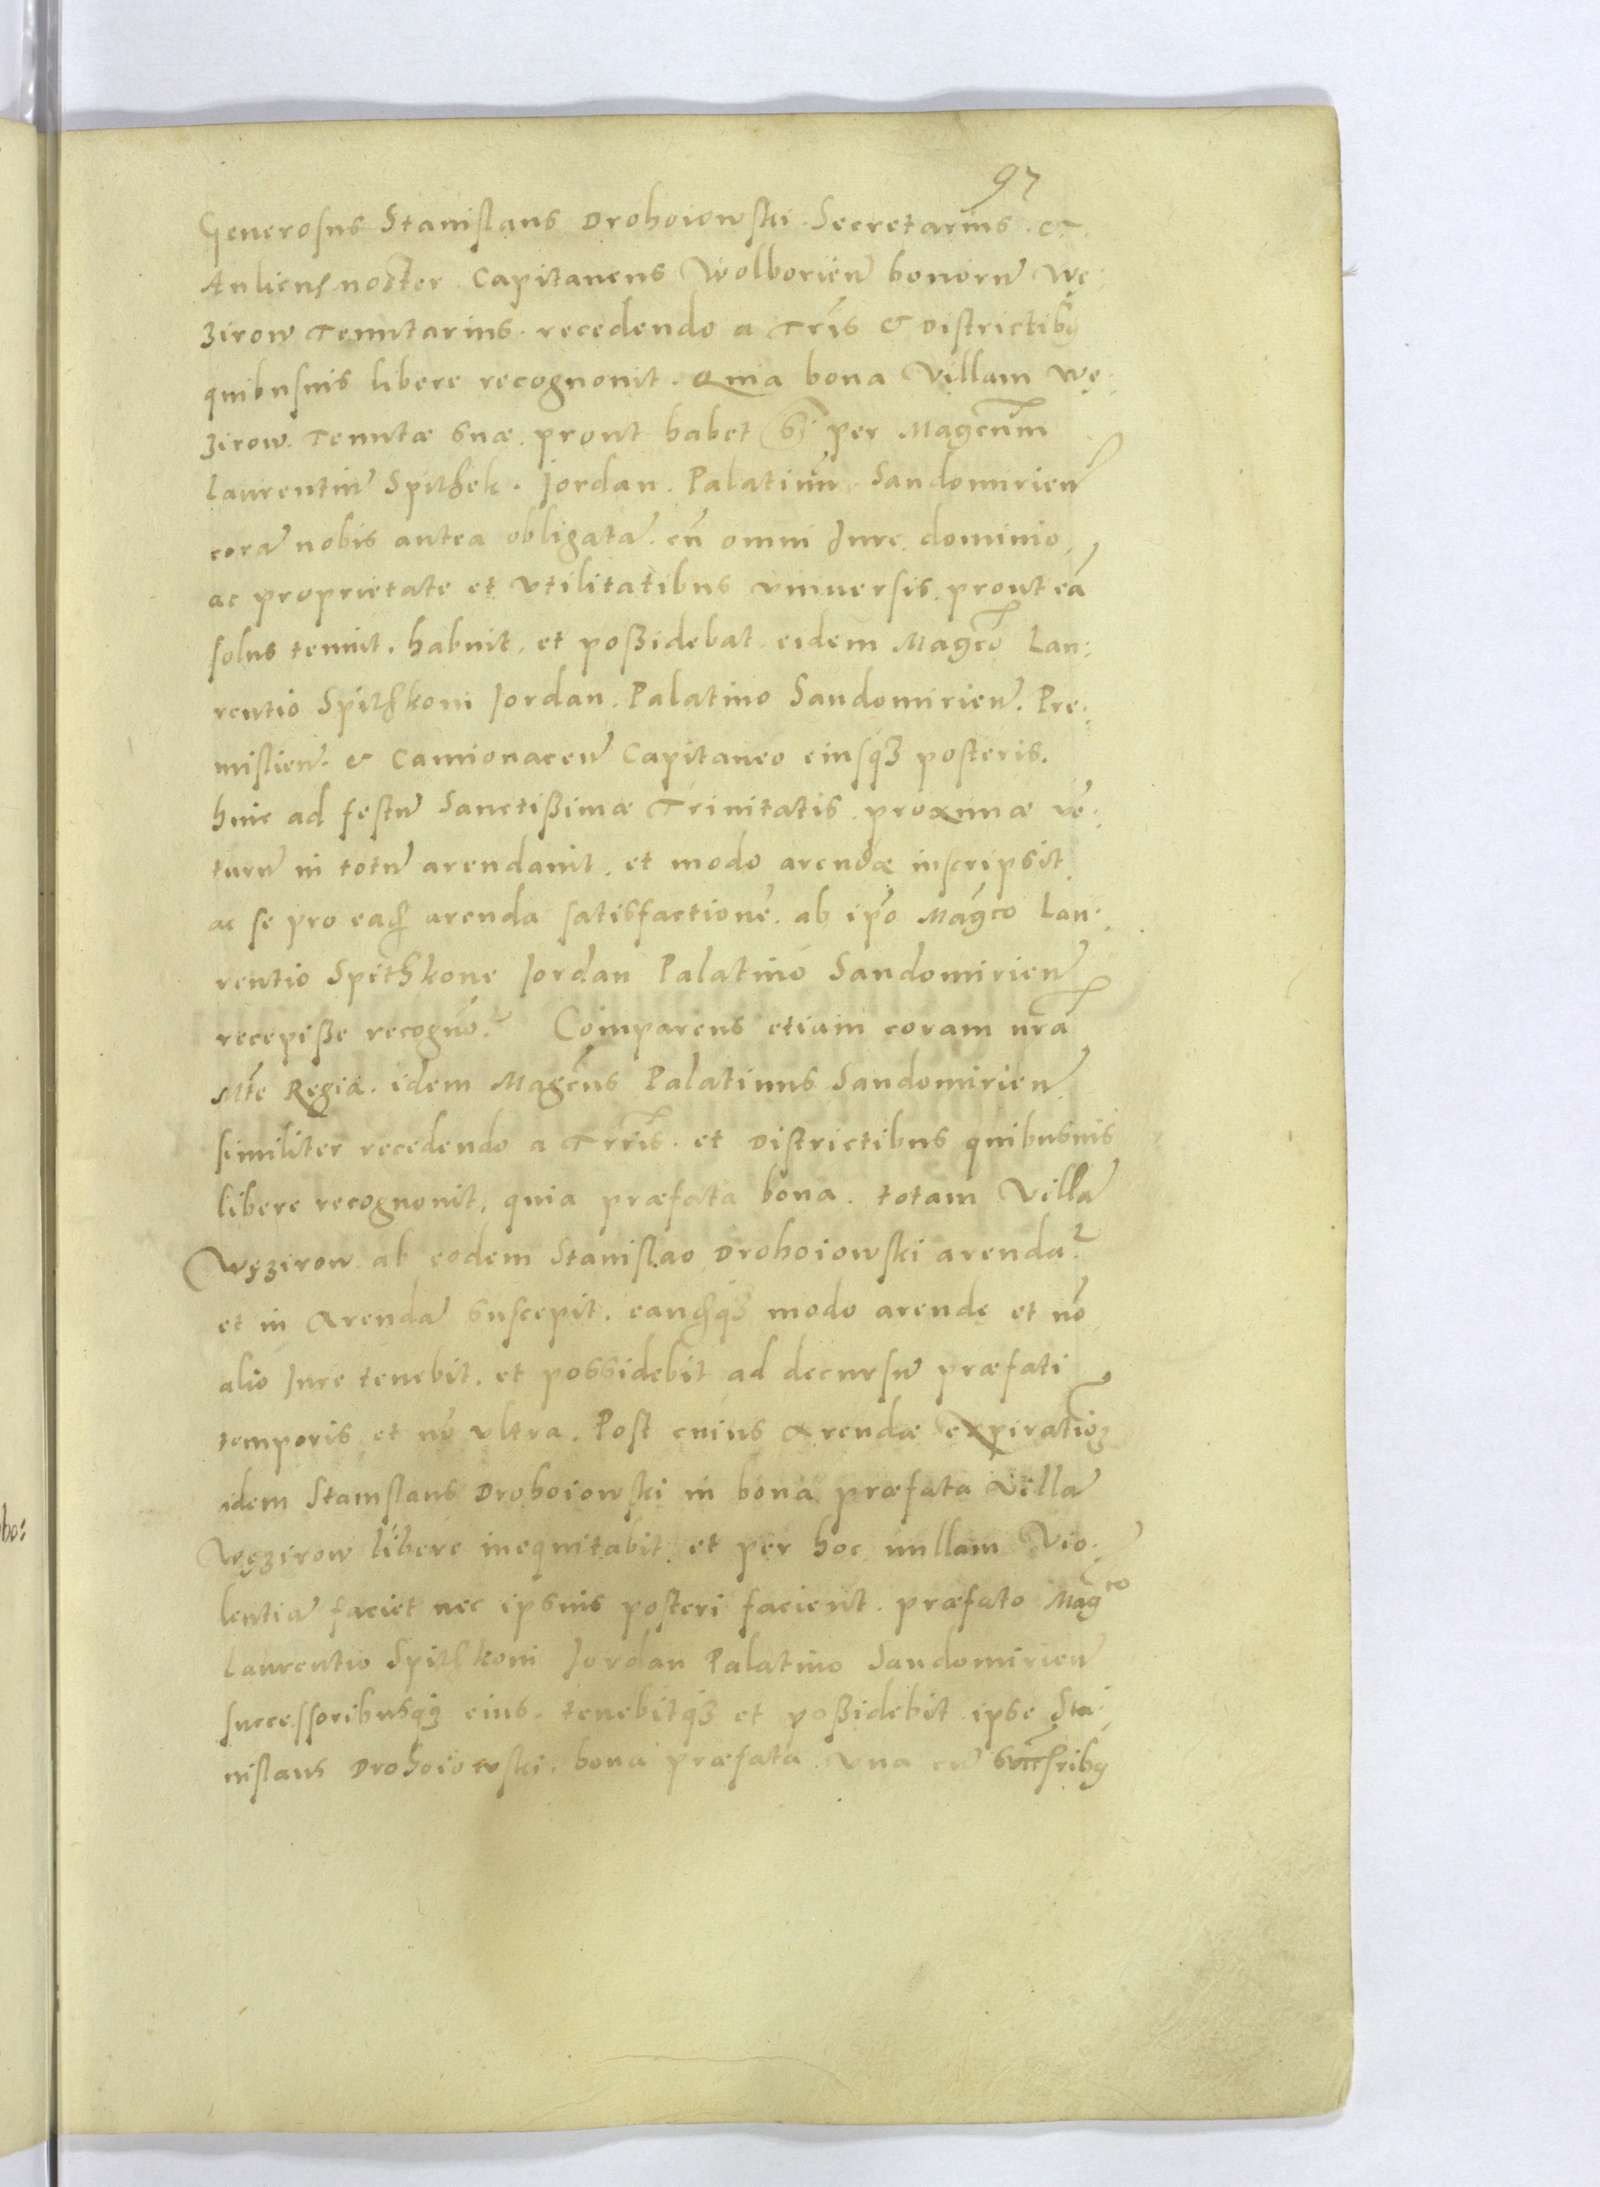 97
Generosus Stanislaus Drohoiowski Secretarius et
Aulicus noster Capitaneus Wolborien̄ bonorū Wę:
zirow Tenutarius. recedendo a Tris̄ & Districtibꝰ
quibusuis libere recognouit. Quia bona Villam Wę:
zirow. Tenutæ suæ. prout habet per Magcum̄
Laurentiū Spithek. Jordan. Palatinū. Sandomirien̄
corā nobis antea obligatā. cū omni Jure. dominio
ac proprietate et vtilitatibus vniuersis. prout eā
solus tenuit. habuit. et poßidebat. eidem Magco Lau:
rentio Spithkoni Jordan. Palatino Sandomirien̄. Pre:
mislien̄. & Camionacen̄ Capitaneo eiusqꝫ posteris.
hinc ad festū Sanctißimæ Trinitatis. proximæ vē:
turū in totū arendauit. et modo arendæ inscripsit
ac se pro ead arenda satisfactionē. ab ipo Magco Lau:
rentio Spithkone Jordan Palatino Sandomirien̄
recepiße recogno. Comparens etiam coram nrā
Mte Regia. idem Magcus Palatinus Sandomirien̄
similiter recedendo a Trris̄. et Districtibus quibusuis
libere recognouit, quia præfata bona. totam Villā
Węzirow ab eodem Stanislao Drohoiowski arenda
et in Arendā suscepit. eandqꝫ modo arendę et nō
alio Jure tenebit. et possidebit ad decursū præfati
temporis et nō vltra. Post cuius Arendæ expiratioꝫ
idem Stanislaus Drohoiowski in bona præfata villā
Węzirow libere inequitabit et per hoc nullam Vio:
lentiā faciet nec ipsius posteri facient. præfato Magco
Laurentio Spithkoni Jordan Palatino Sandomirien̄
successoribusqꝫ eius. tenebitqꝫ et poßidebit ipse Sta:
nislaus Drohoiowski. bona præfata vna cū succsribꝰ
bo: